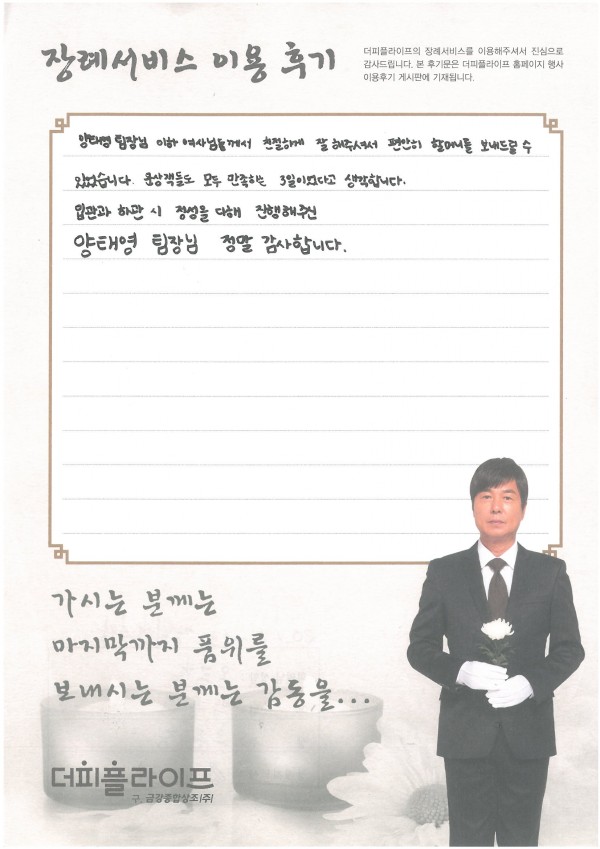 장례서비스 이용 후기
더피플라이프의 장례서비스를 이용해주셔서 진심으로
감사드립니다. 본 후기문은 더피플라이프 홈페이지 행사
이용후기 게시판에 기재됩니다.
양태영 팀장님 이하 여사님들께서 친절하게 잘 해주셔서 편안히 할머니를 보내드릴 수
있었습니다. 문상객들도 모두 만족하는 3일이었다고 생각합니다.
입관과 하관 시 정성을 다해 진행해주신
양태영 팀장님 정말 감사합니다.
가시는 분께는
마지막까지 품위를
보내시는 분께는 감동을...
더피플라이프
구. 금강종합상조(주)